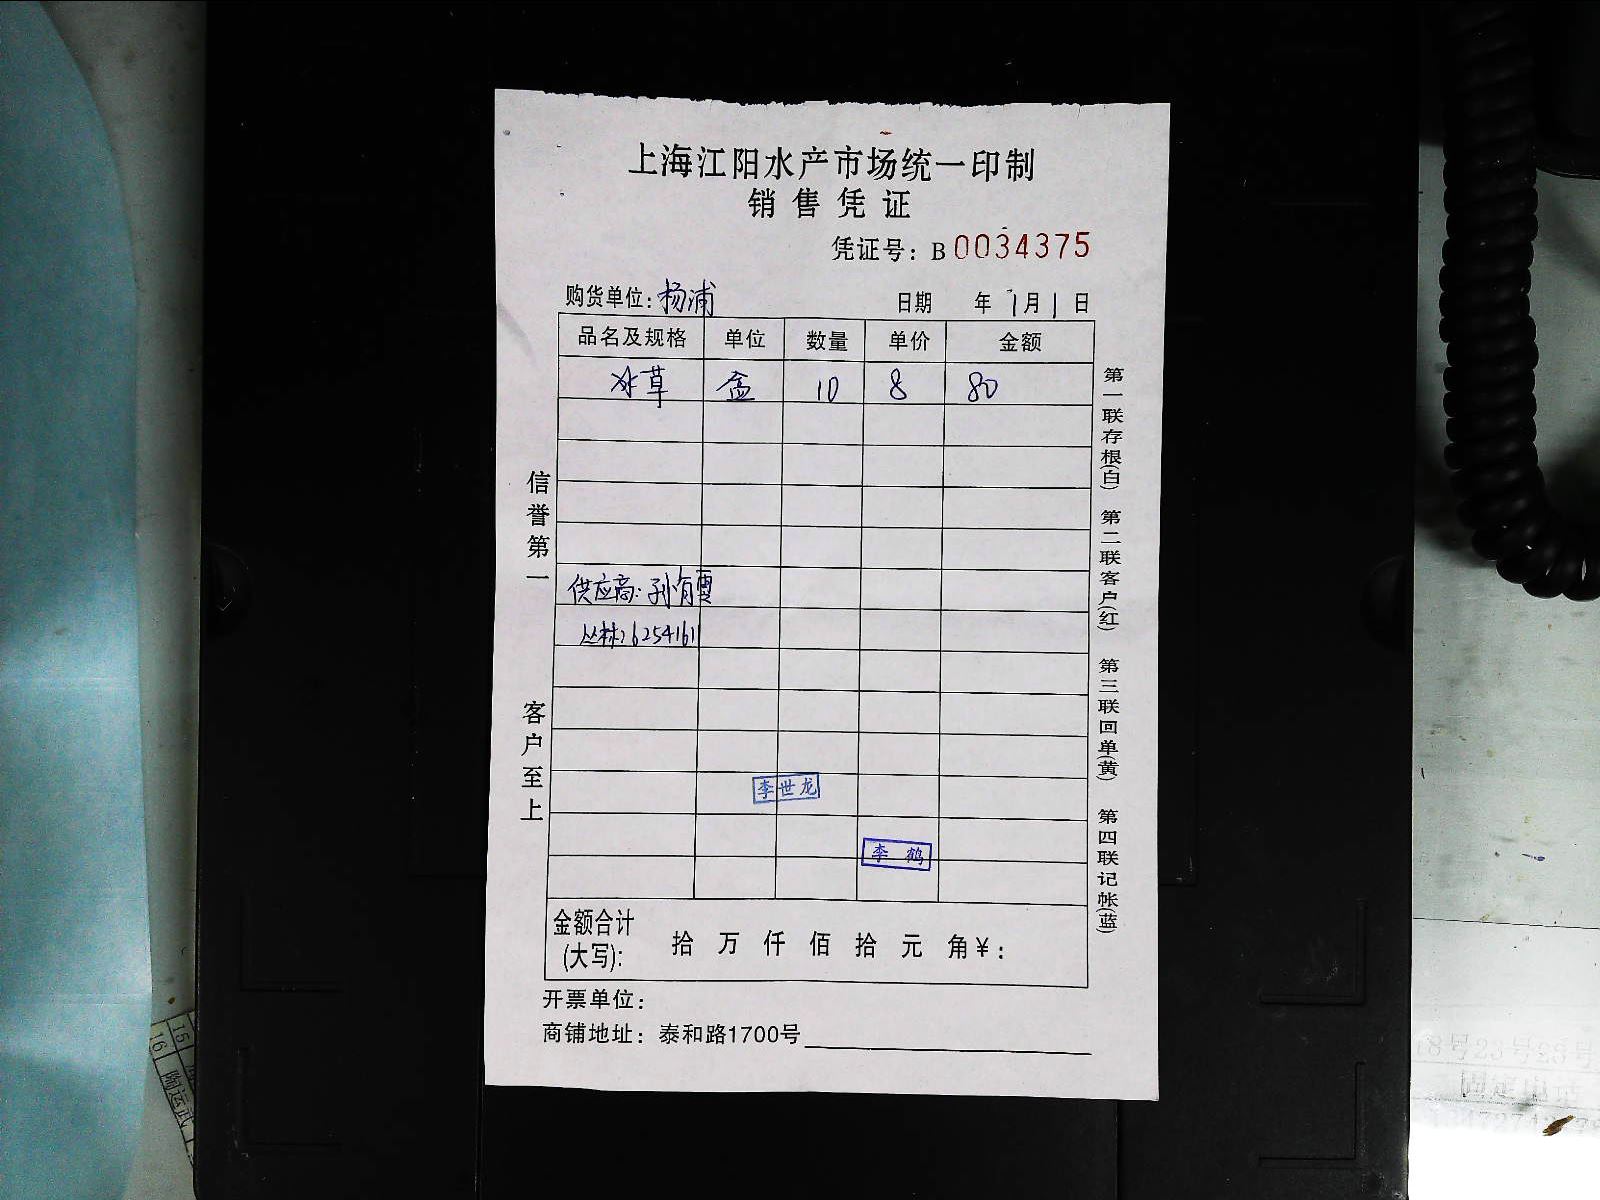 上海江阳水产市场统一印制
销售凭证
凭证号：B0034375
购货单位：杨浦 日期 年 1月1日
品名及规格 单位 数量 单价 金额
冰草 盒 10 8 80
供应商：孙有
丛林：6254161
李世龙
李鹤
金额合计
(大写)： 拾 万 仟 佰 拾 元 角￥：
开票单位：
商铺地址：泰和路1700号
信誉第一 客户至上
第一联存根(白) 第二联客户(红) 第三联回单(黄) 第四联记帐(蓝)
15
16 陶运武
18号23号28号
固定电话